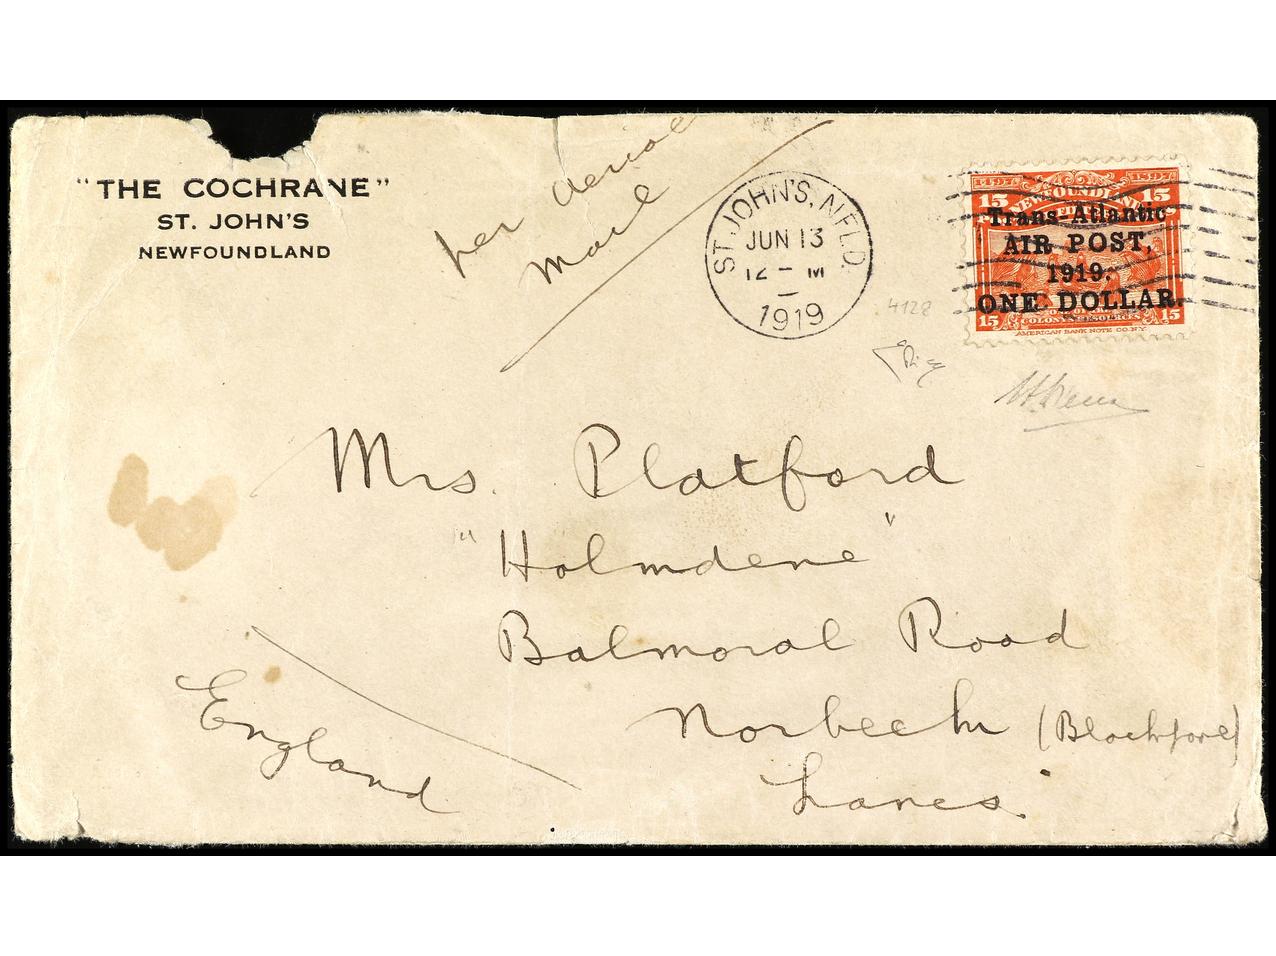 "THE COCHRANE"
ST. JOHN'S
NEWFOUNDLAND
per Aerial
Mail
ST. JOHN'S, NFLD.
JUN 13
12 - M
1919
1497 1897
15 NEWFOUNDLAND 15
Trans-Atlantic
AIR POST,
1919.
ONE DOLLAR.
15 15
AMERICAN BANK NOTE CO. N.Y.
4128
Mrs. Platford
"Holmdene"
Balmoral Road
Norbeck (Blackpool)
Lancs.
England